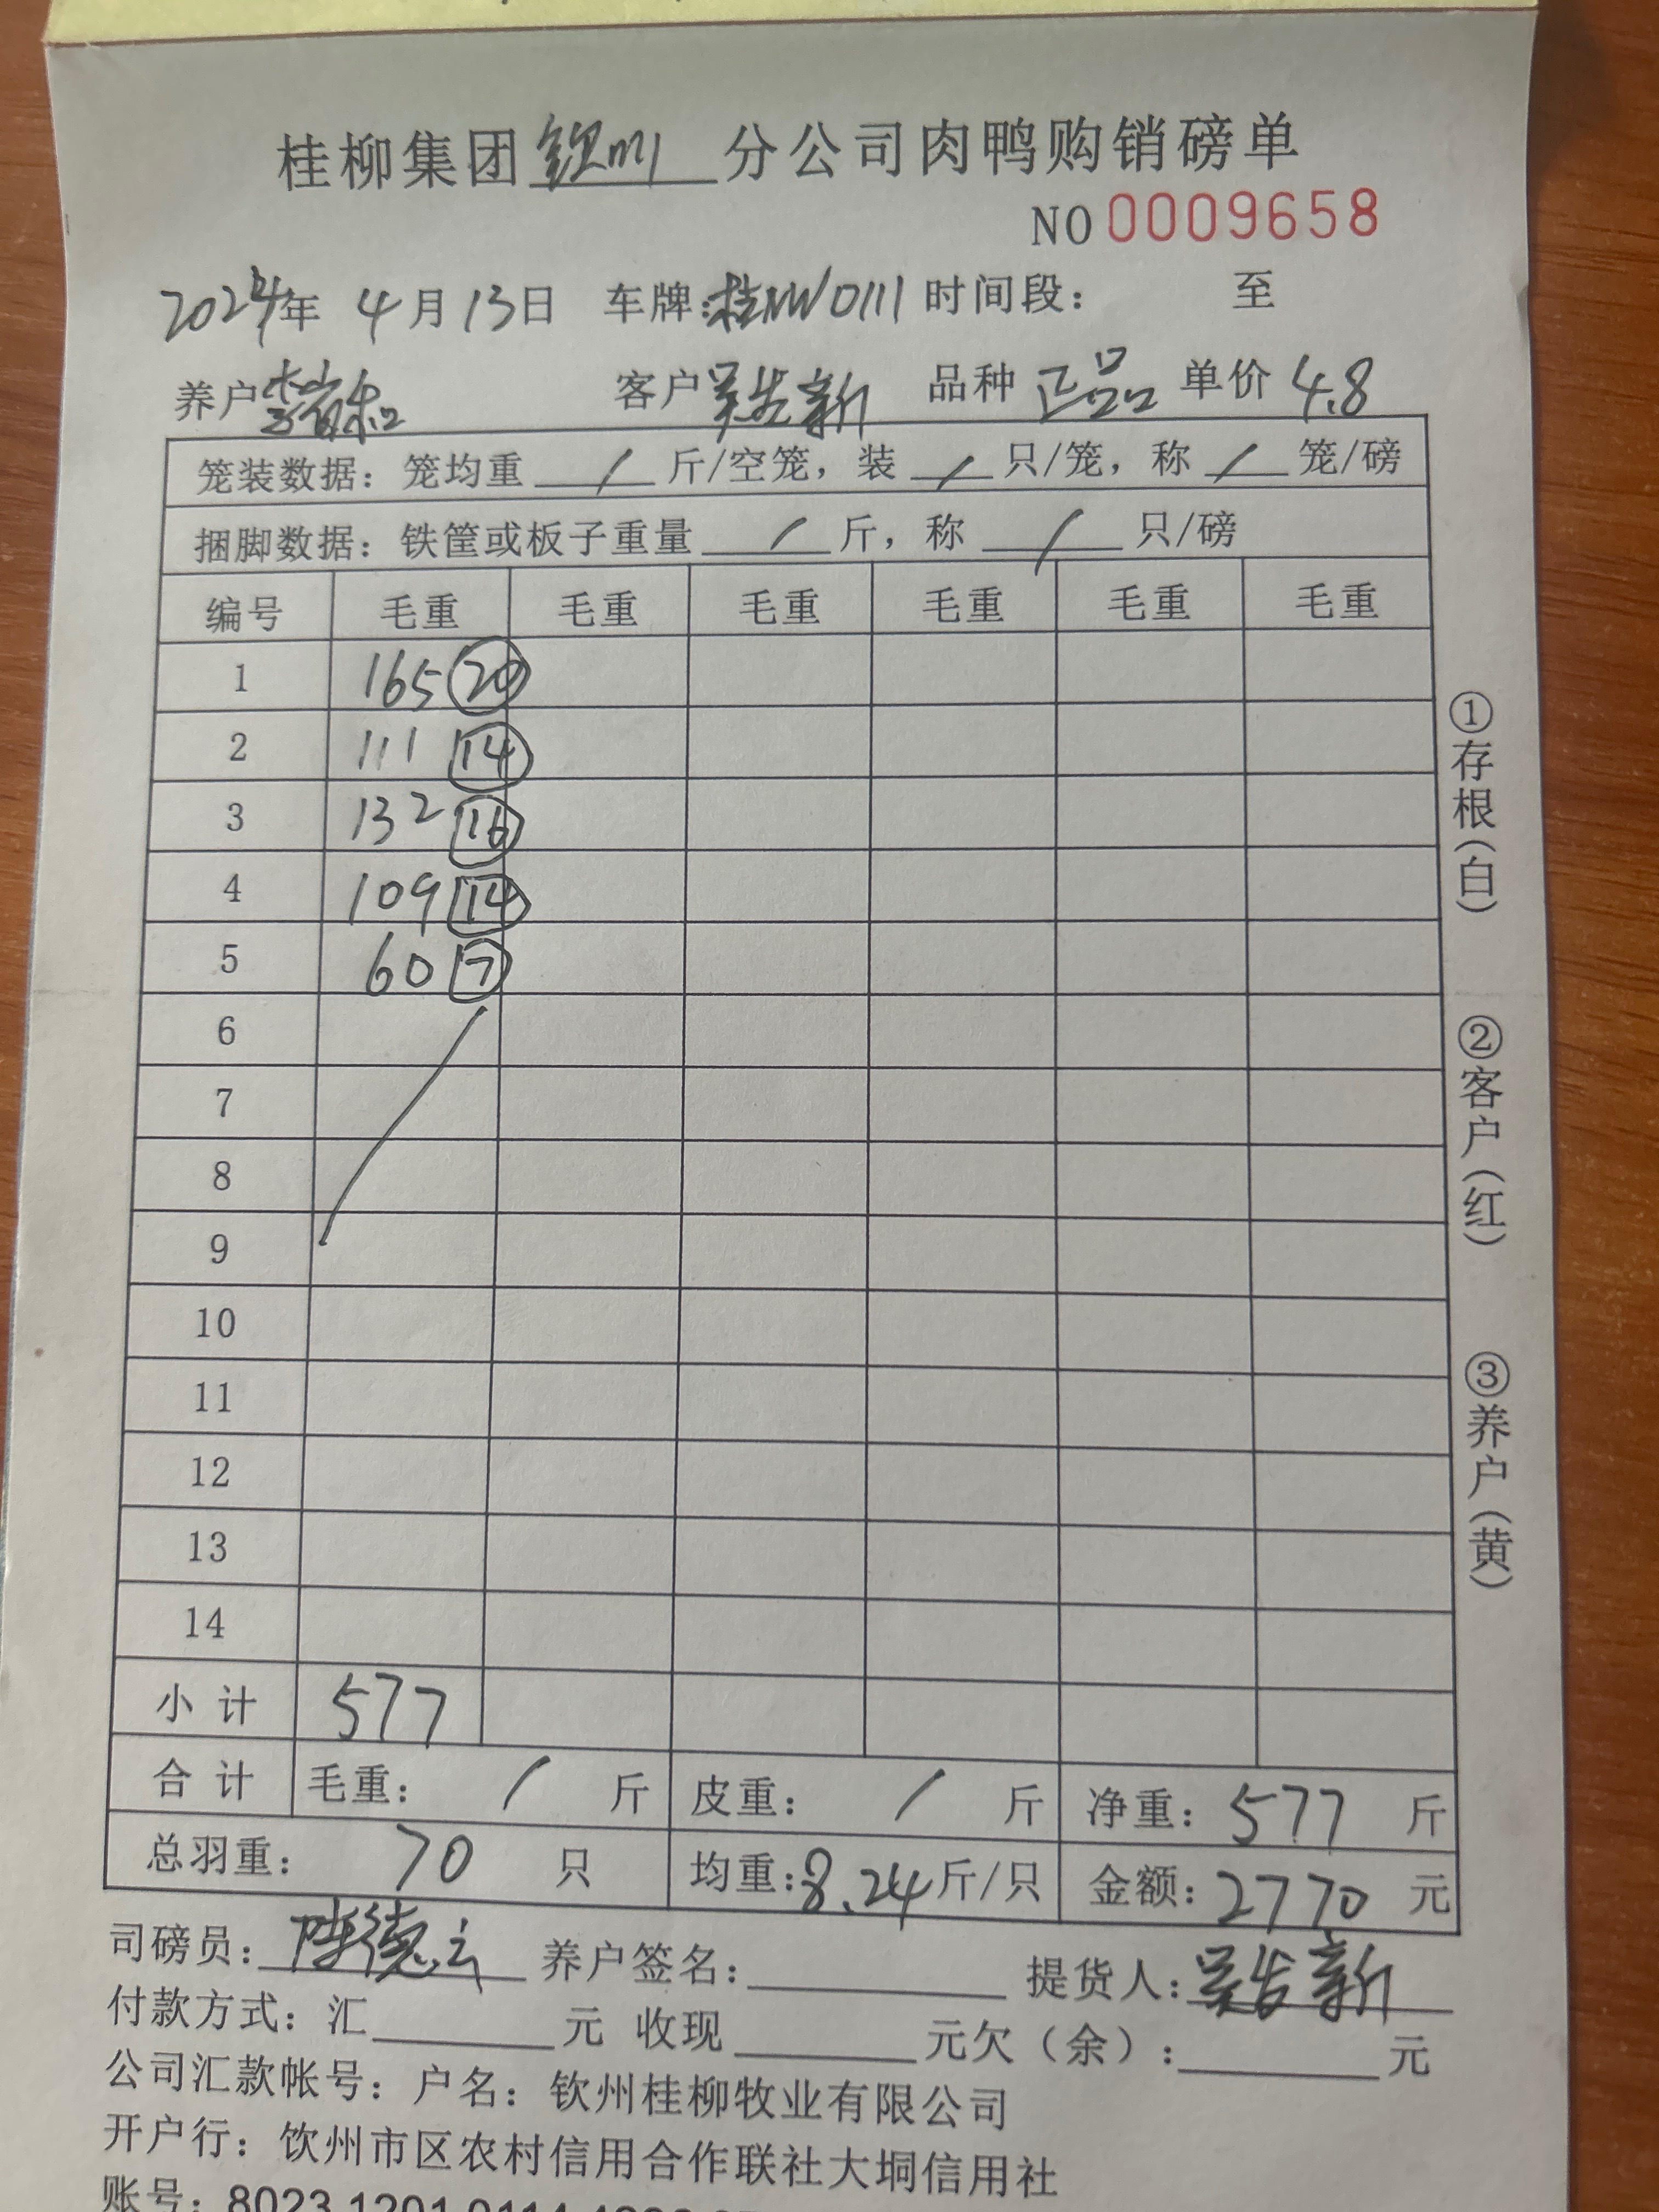 桂柳集团钦州分公司肉鸭购销磅单
NO 0009658
2024年 4月13日 车牌:桂NW0111 时间段: 至
养户 客户吴发新 品种 正品 单价 4.8
笼装数据: 笼均重 / 斤/空笼, 装 / 只/笼, 称 / 笼/磅
捆脚数据: 铁筐或板子重量 / 斤, 称 / 只/磅
编号 毛重 毛重 毛重 毛重 毛重 毛重
1 165 20
2 111 14
3 132 16
4 109 14
5 60 7
6
7
8
9
10
11
12
13
14
小计 577
合计 毛重: / 斤 皮重: / 斤 净重: 577 斤
总羽重: 70 只 均重:8.24斤/只 金额:2770元
司磅员: 陆德云 养户签名: 提货人:吴发新
付款方式: 汇 元 收现 元欠(余): 元
公司汇款帐号: 户名: 钦州桂柳牧业有限公司
开户行: 饮州市区农村信用合作联社大垌信用社
账号: 8023 1201 0114
①存根(白)
②客户(红)
③养户(黄)